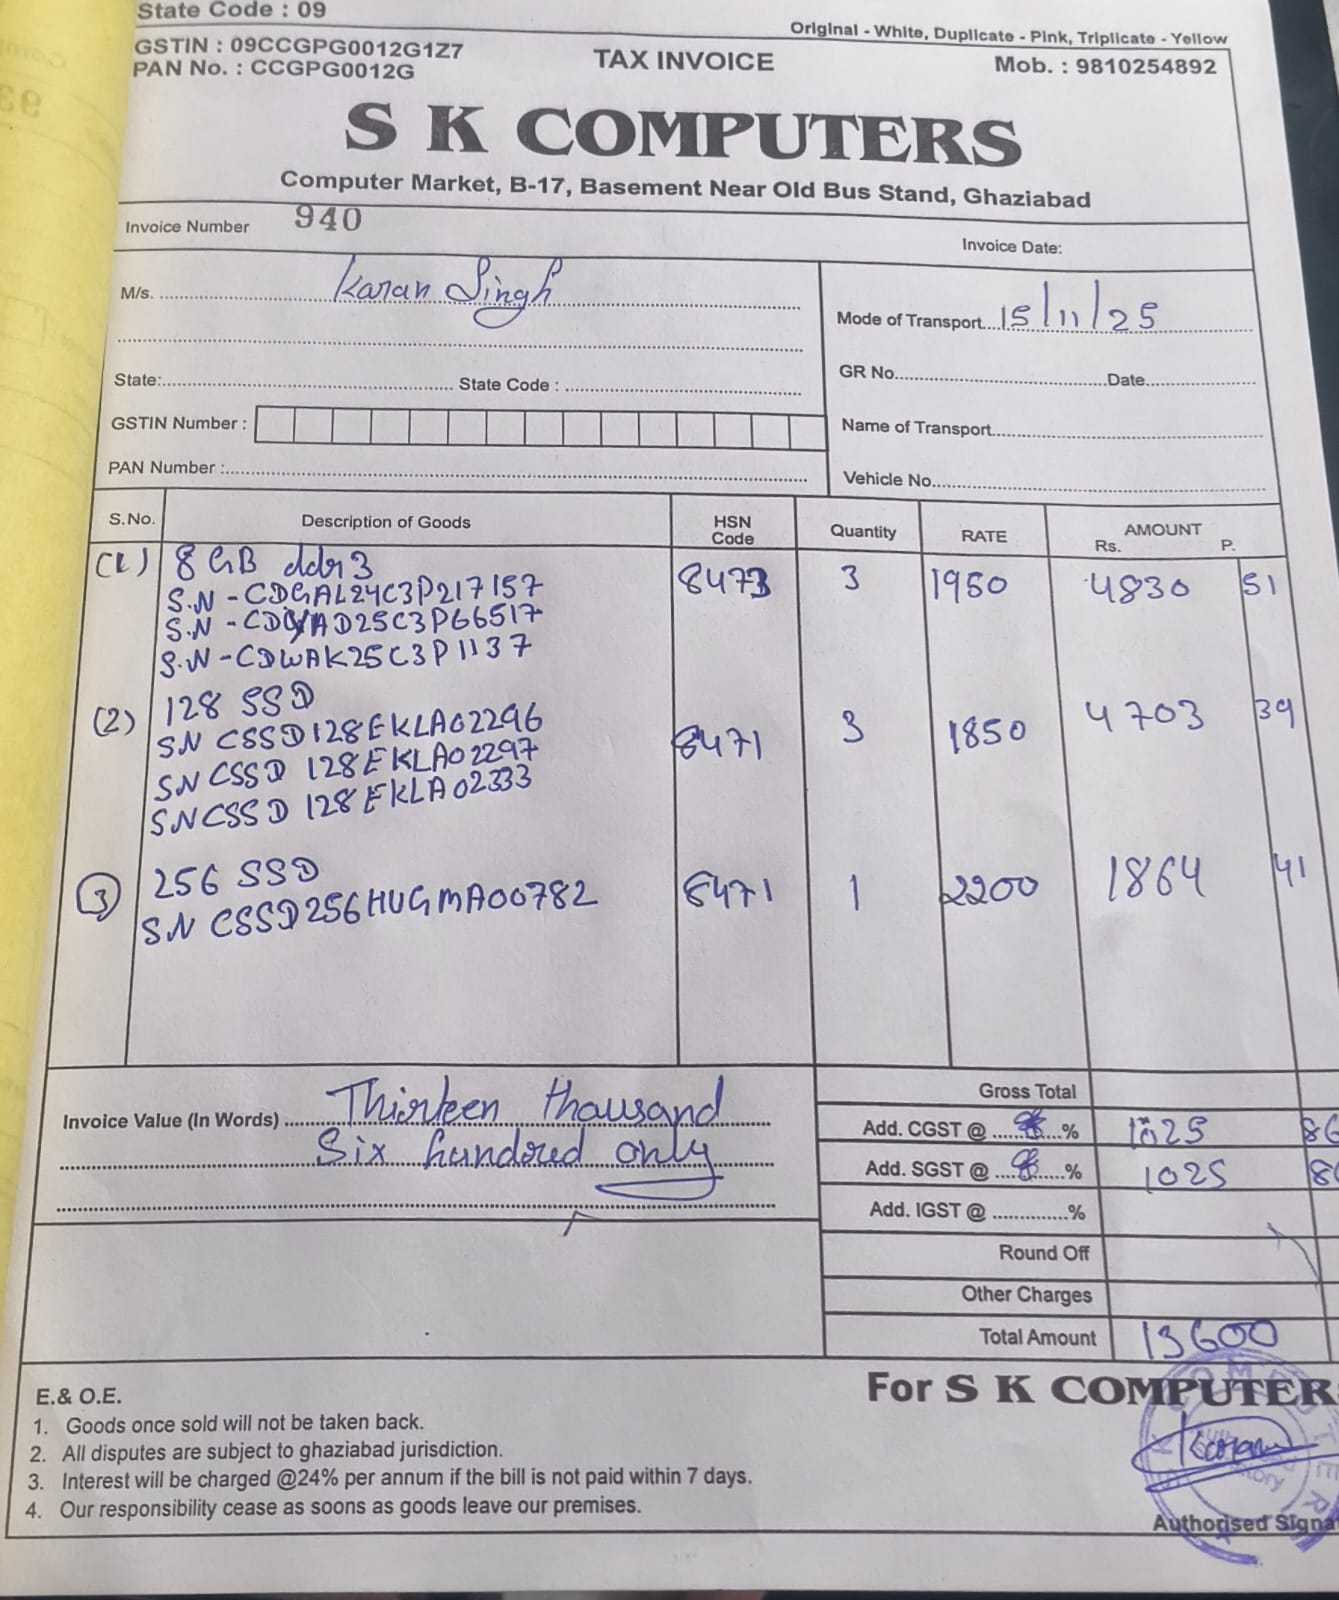 State Code : 09
Original - White, Duplicate - Pink, Triplicate - Yellow
GSTIN : 09CCGPG0012G1Z7
PAN No. : CCGPG0012G
TAX INVOICE
Mob. : 9810254892
S K COMPUTERS
Computer Market, B-17, Basement Near Old Bus Stand, Ghaziabad
Invoice Number 940
Invoice Date:
M/s. Karan Singh
Mode of Transport 15/11/25
State: State Code :
GR No. Date
GSTIN Number :
Name of Transport
PAN Number :
Vehicle No.
S.No. Description of Goods HSN Code Quantity RATE AMOUNT Rs. P.
(1) 8 GB ddr3 8473 3 1950 4830 51
S.N - CDGAL24C3P217157
S.N - CDWAD25C3P66517
S.N - CDWAK25C3P1137
(2) 128 SSD 8471 3 1850 4703 39
SN CSSD128EKLA02296
SN CSSD 128EKLA02297
SN CSSD 128EKLA02333
(3) 256 SSD 8471 1 2200 1864 41
SN CSSD256HUGMA00782
Gross Total
Invoice Value (In Words) Thirteen thousand
Six hundred only
Add. CGST @ % 1025 86
Add. SGST @ % 1025
Add. IGST @ %
Round Off
Other Charges
Total Amount 13600
E.& O.E.
1. Goods once sold will not be taken back.
2. All disputes are subject to ghaziabad jurisdiction.
3. Interest will be charged @24% per annum if the bill is not paid within 7 days.
4. Our responsibility cease as soons as goods leave our premises.
For S K COMPUTER
Karan
Authorised Signa